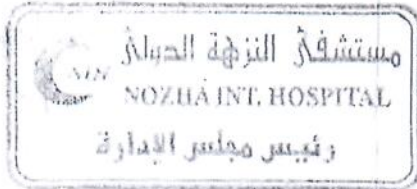 مستشفى النزهة الدولى
NOZHA INT. HOSPITAL
رئيس مجلس الإدارة